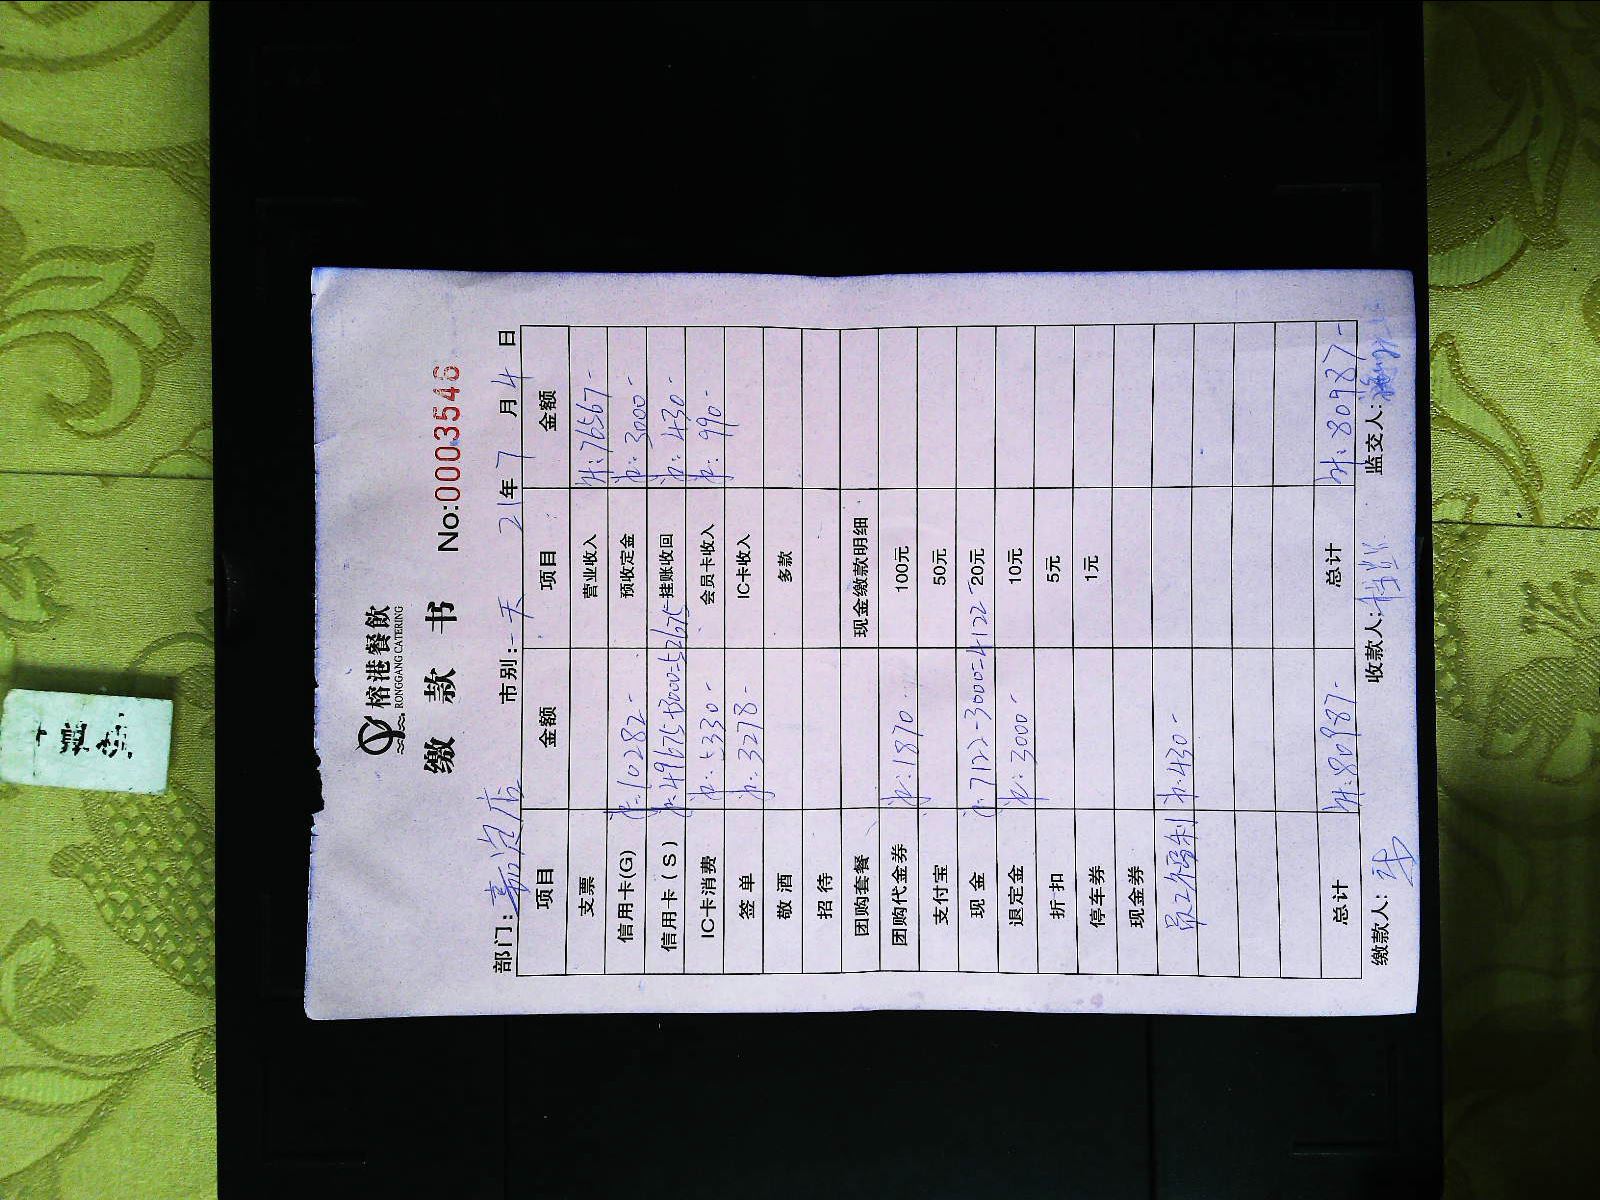 榕港餐飲
RONGGANG CATERING
缴 款 书
No:0003546
部门: 店 市别: 一天 21年7月4日
项目 金额 项目 金额
支票 营业收入 76567-
信用卡(G) 10282- 预收定金 3000-
信用卡(S) 49675+3000=52675 挂账收回 430-
IC卡消费 5330- 会员卡收入 990-
签单 3278- IC卡收入
敬酒 多款
招待
团购套餐 现金缴款明细
团购代金券 1870- 100元
支付宝 50元
现金 7122-3000=4122- 20元
退定金 3000- 10元
折扣 5元
停车券 1元
现金券
员工福利 430-
总计 80987- 总计 80987-
缴款人: 收款人: 监交人: